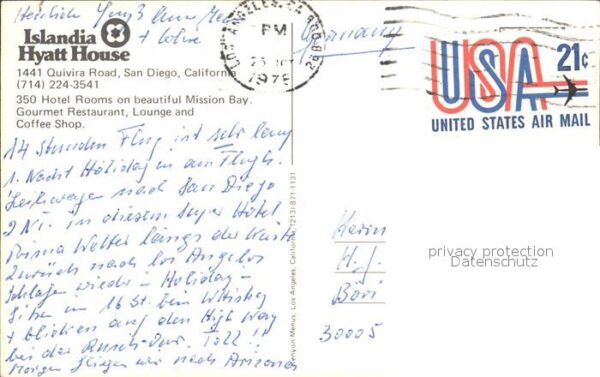 Islandia
Hyatt House
1441 Quivira Road, San Diego, California
(714) 224-3541
350 Hotel Rooms on beautiful Mission Bay.
Gourmet Restaurant, Lounge and
Coffee Shop.
14 Stunden Flug ist sehr lang
1. Nacht Holiday in am Flugh.
Leihwagen nach San Diego
2 Nä. in diesem Super Hotel
Prima Wetter längs der Küste
zurück nach los Angelos
Schlafen wieder - Holiday -
Sitzen im 16 St. beim Whisky
+ blicken auf den High Way
bei der Rusch-Our. Toll!!
Morgen fliegen wir nach Arizona
Herzlich
Kenyon Menus, Los Angeles, California, (213) 871-1131
LOS ANGELES, CA
PM
1978
Germany
USA 21c
UNITED STATES AIR MAIL
Herrn
H. J.
30005
privacy protection
Datenschutz